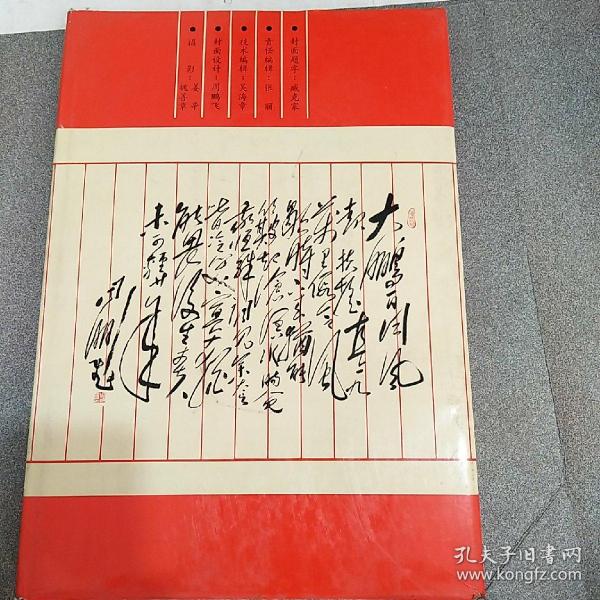 ●封面题字：臧克家
●责任编辑：张 丽
●技术编辑：吴海章
●封面设计：周鹏飞
●摄 影：姜 平
大鹏一日同风
起扶摇直上九
万里假令风
歇时下来犹能
簸却沧溟水时人见
我恒殊调见余大言
皆冷笑宣父犹
能畏后生丈夫
未可轻年少
周鹏飞
孔夫子旧书网
www.kongfz.com